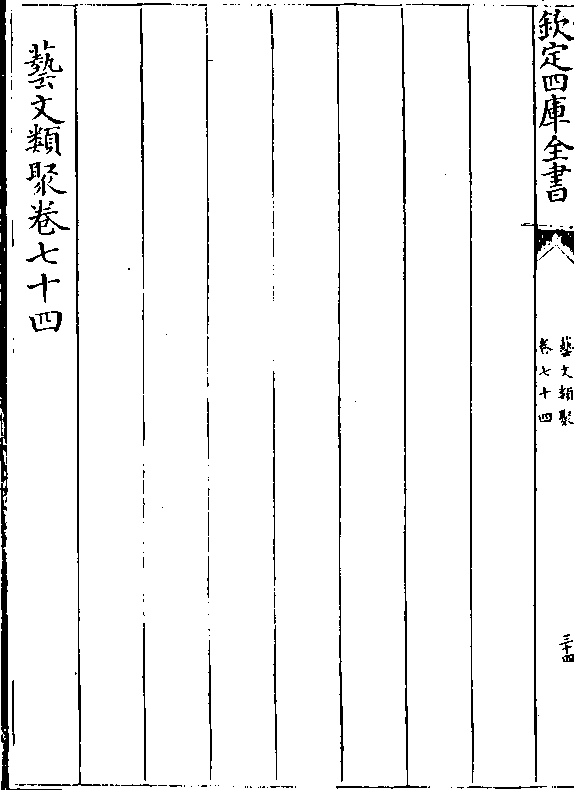 欽定四庫全書
藝文類聚
卷七十四
三十四
藝文類聚卷七十四